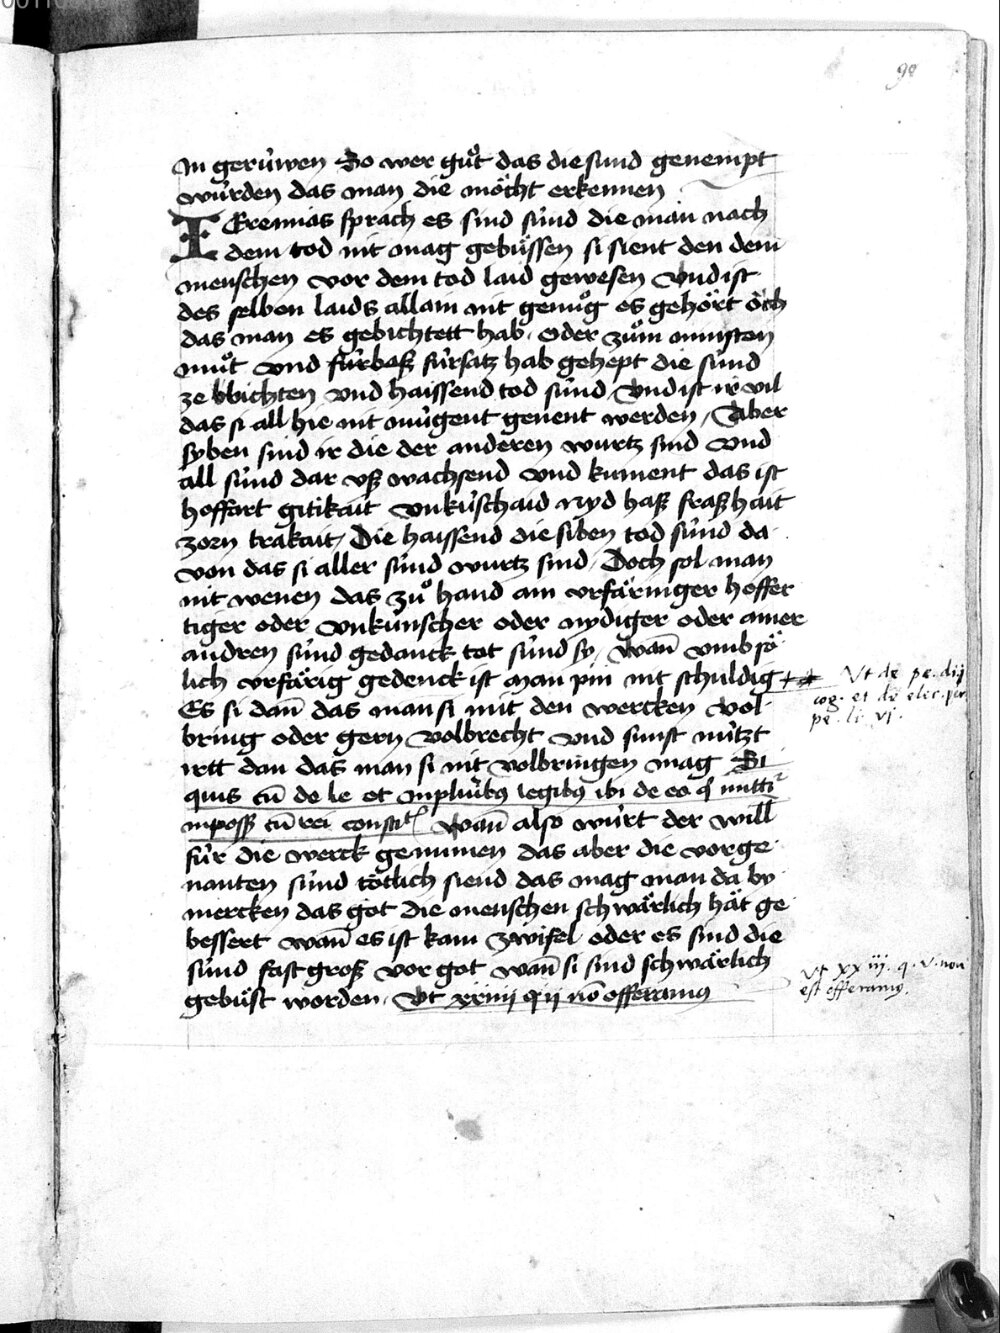 90
In gerúwen So wer gůt das die sund genempt
wúrden das man die möcht erkennen
IEremias sprach es sind súnd die man nach
dem tod nit mag gebüssen si sient den dem
menschen vor dem tod laid gewesen Und ist
des selben laids allain nit genůg es gehört öch
das man es gebichtett hab. oder zům minsten
můt und fúrbaß fúrsatz hab gehept die súnd
ze bbichten und haissend tod súnd / Und ist ir vil
das si all hie nit múgent genent werden / Aber
syben sind ir die der anderen wurtz sind Und
all súnd dar uß wachsend und kument das ist
hoffart gitikait unkúschaid nyd haß fraßhait
zorn trakait / Die haissend die siben tod súnd da
von das si aller súnd wurtz sind / Doch sol man
nit wenen das zů hand ain urfäringer hoffer
tiger oder unkúnscher oder nydiger oder ainer
andren súnd gedanck tot súnd sy / wañ umb sö
lich urfärig gedenck ist man pin nit schuldig
Ut de pe. dij
cog. et de elec. pir
pe. li vj.
Es si dañ das man si mit den wercken vol
bring oder gern volbrecht und sunst nútzt
irtt dan das man si nit volbringen mag Si
quis cũ de le et inpluribꝫ legibꝫ ibi de eo
inposs cũ rei constit Wañ also wúrt der will
fúr die werck genumen das aber die vorge
nanten súnd tötlich siend das mag man da by
mercken das got die menschen schwärlich hät ge
bessert wañ es ist kain zwifel oder es sind die
súnd fast groß vor got wañ si sind schwärlich
gebúst worden. Ut xxiiij q ij nõ offeramus
Ut xxiij. q. v. non
est offeramꝰ.